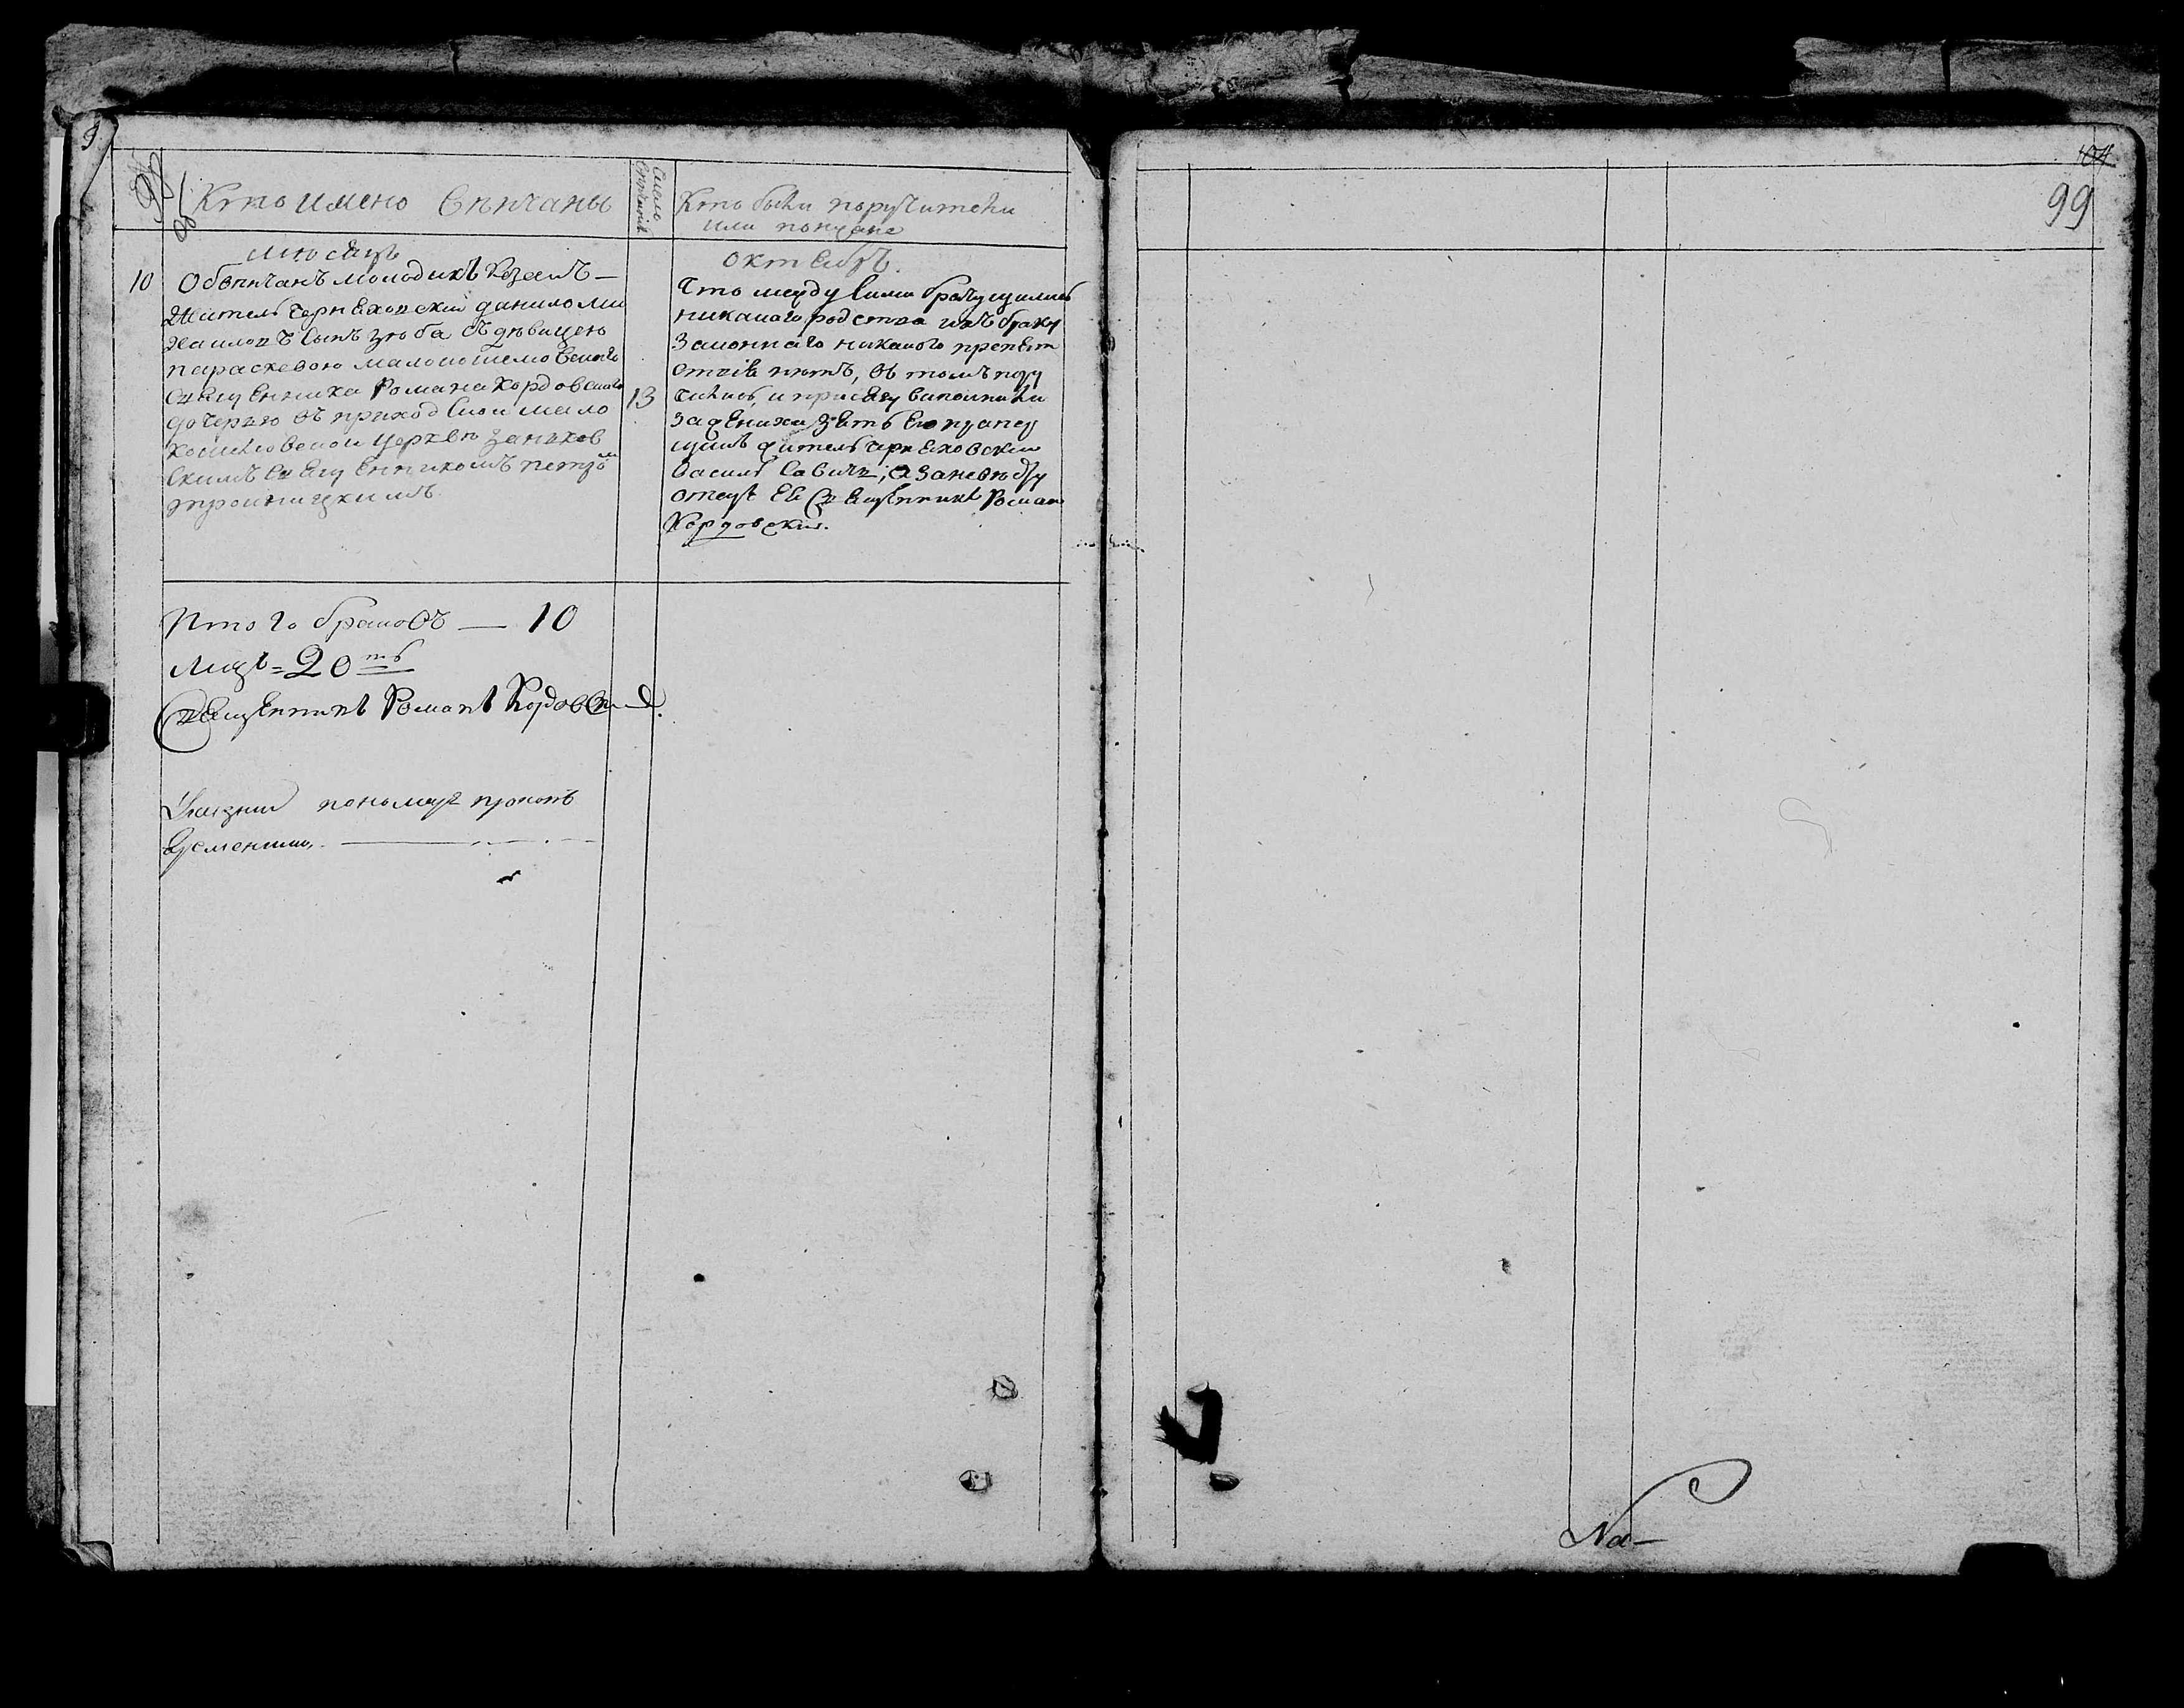 9
Кто имено венчаны
Число венчания
Кто были поручители
или поизане
месяцъ
октебръ.
10
Обвенчанъ молодикъ Козакъ —
Житель чернеховский данило ми
хаиловъ сынъ Зюба съ девицею
параскевою малокошелювского
священника Романа Кордовского
дочерью въ приход свои мало
кошелювской церкви Заньков
скимъ священникомъ петромъ
троиницкимъ.
13
Что между сими брачущимись
никакого родства и къ браку
законнаго никакого препет
ствия нетъ, въ томъ пору
чились, и присягу виполнили
за жениха зеть его
житель чернеховский
Василь Савичъ, а за невесту
отецъ ее священникъ Роман
Кордовский.
Итого браковъ — 10
Лицъ = 20ть
Священникъ Романъ Кордовский.
пономаръ прокопъ
104
99
Na—